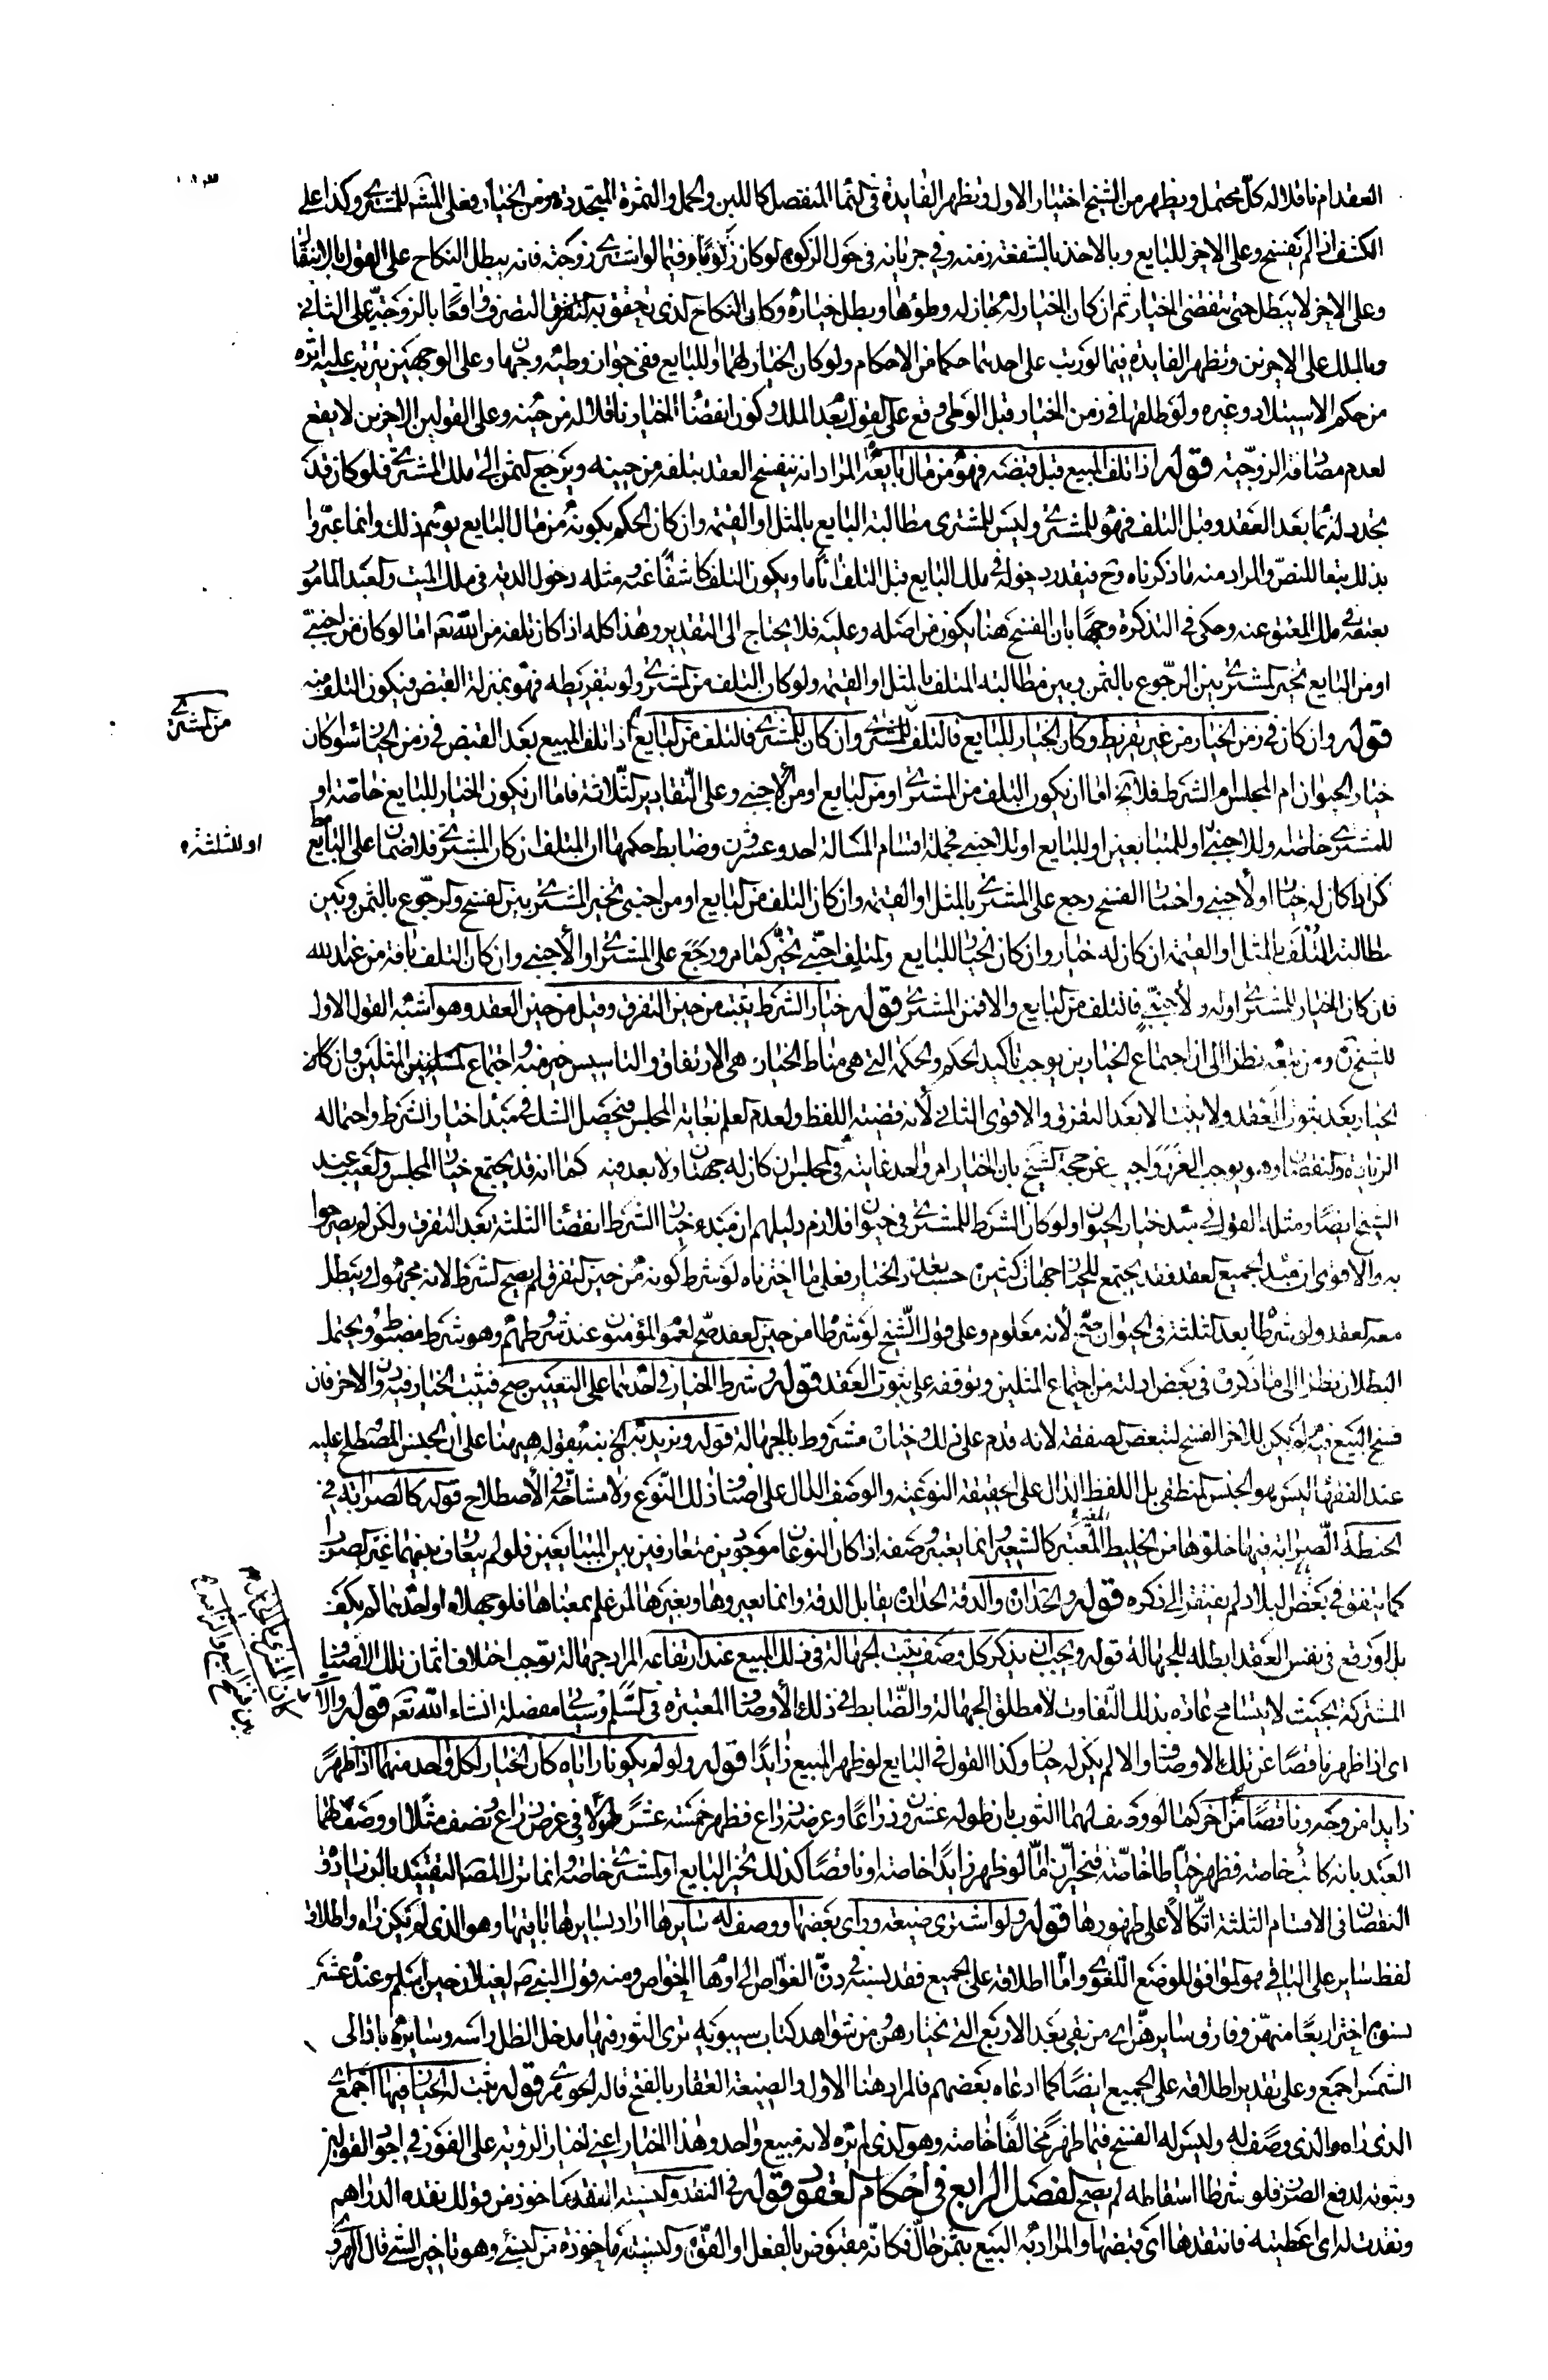 العقد ام ناقلا له كل محتمل ويظهر من الشيخ اختيار الاول وتظهر الفايدة في النما المنفصل كاللبن والحمل والثمرة المتجددة زمن الخيار فعلى المشهور للمشتري وكذا على
الكشف اذا لم يفسخ وعلى الاخر للبايع وبالاخذ بالشفعة زمنه وفي جريانه في حول الزكوة لو كان زكويا وفيما لو اشترى زوجته فانه يبطل النكاح على القول بالانتقال
وعلى الاخر لا يبطل حتى ينقضي الخيار ثم ان كان الخيار له جاز له وطؤها ويبطل خياره وكان النكاح الذي تحقق به التصرف واقعا بالزوجية على الثاني
وبالملك على الاخرين وتظهر الفايدة فيما لو رتب على احدهما حكما من الاحكام ولو كان الخيار لهما او للبايع ففي جواز وطيه وجهان وعلى الوجهين يترتب عليه اثره
من حكم الاستيلاد وغيره ولو طلقها في زمن الخيار قبل الوطي وقع على القول بعدم الملك وكون انقضاء الخيار ناقلا له من حينه وعلى القولين الاخرين لا يقع
لعدم مصادفة الزوجية قوله اذا تلف المبيع قبل قبضه فهو من مال بايعه المراد انه ينفسخ العقد بتلفه من حينه ويرجع الثمن الى ملك المشتري فلو كان قد
تجدد له نما بعد العقد وقبل التلف فهو للمشتري وليس للمشتري مطالبة البايع بالمثل او القيمة وان كان الحكم بكونه من مال البايع يوهم ذلك وانما عبروا
بذلك تبعا للنص والمراد منه ما ذكرناه وح فيقدر دخوله في ملك البايع قبل التلف انا ما ويكون التلف كاشفا عنه ومثله دخول الدية في ملك الميت والعبد المامور
بعتقه في ملك المعتق عنه وحكى في التذكرة وجها بان الفسخ هنا يكون من اصله وعليه فلا يحتاج الى التقدير وهذا كله اذا كان تلفه من الله تعالى اما لو كان من اجنبي
او من البايع تخير المشتري بين الرجوع بالثمن وبين مطالبة المتلف بالمثل او القيمة ولو كان التلف من المشتري ولو بتفريطه فهو بمنزلة القبض فيكون التلف منه
من المشتري
قوله وان كان في زمن الخيار من غير تفريط وكان الخيار للبايع فالتلف من المشتري وان كان للمشتري فالتلف من البايع اذا تلف المبيع بعد القبض في زمن الخيار سواء كان
خيار الحيوان ام المجلس ام الشرط فلا يخ اما ان يكون التلف من المشتري او من البايع او من الاجنبي وعلى التقادير الثلاثة فاما ان يكون الخيار للبايع خاصة او
للمشتري خاصة او للاجنبي او للمتبايعين او للبايع او للاجنبي فجملة اقسام المسالة احد وعشرون وضابط حكمها ان المتلف ان كان المشتري فلا ضمان على البايع
او للثلثة
لكن اذا كان له خيار او لاجنبي واختار الفسخ رجع على المشتري بالمثل او القيمة وان كان التلف من البايع او من اجنبي تخير المشتري بين الفسخ والرجوع بالثمن وبين
مطالبة المتلف بالمثل او القيمة ان كان له خيار وان كان الخيار للبايع والمتلف اجنبي تخير كما مر ورجع على المشتري او الاجنبي وان كان التلف بافة من عند الله
فان كان الخيار للمشتري او له ولاجنبي فالتلف من البايع والا فمن المشتري قوله خيار الشرط يثبت من حين التفرق وقيل من حين العقد وهو اشبه القول الاول
للشيخ ره ومن تبعه نظرا الى ان اجتماع الخيارين يوجب تاكيد الحكم والحكمة التي هي مناط الخيار هي الارتفاق والتاسيس خير منه واجتماع المثلين وان كان
الخيار بعد ثبوت العقد ولا يثبت الا بعد التفرق والاقوى الثاني لانه قضية اللفظ ولعدم العلم بغاية المجلس فيحصل الشك في مبدا خيار الشرط واحتماله
الزيادة والنقصان وهو يوجب الغرر واجيب عن حجة الشيخ بان الخيار امر واحد غايته في المجلس ان كان له جهتان ولا بعد فيه كما انه قد يجتمع خيار المجلس والعيب عند
الشيخ ايضا ومثله القول في مبدا خيار الحيوان ولو كان الشرط للمشتري في حيوان فلازم دليلهم ان مبدء خيار الشرط انقضاء الثلثة بعد التفرق ولكن لم يصرحوا
به والاقوى ان مبدا الجميع العقد فقد يجتمع للخيار جهات كثيرة حسب تعدد الخيار فعلى ما اخترناه لو شرط كونه من حين التفرق لم يصح الشرط لانه مجهول ويبطل
معه العقد ولو شرطا بعد الثلثة في الحيوان صح لانه معلوم وعلى قول الشيخ لو شرطا من حين العقد صح لعموم المؤمنون عند شروطهم وهو شرط مضبوط ويحتمل
البطلان نظرا الى ما ذكروه في بعض ادلته من اجتماع المثلين وتوقفه على ثبوت العقد قوله ولو شرط الخيار في احدهما على التعيين صح فيثبت الخيار فيه دون الاخر فان
فسخ البيع فيه لم يكن للاخر الفسخ لتبعض الصفقة لانه قدم على ذلك خيار مشروط بالجهالة قوله ونريد بالجنس نبه بقوله هيهنا على ان الجنس المصطلح عليه
عند الفقهاء ليس هو الجنس المنطقي بل اللفظ الدال على الحقيقة النوعية والوصف الدال على اصناف ذلك النوع ولا مشاحة في الاصطلاح قوله كالصرابة في
الحنطة الصرابة فيها خلوها من الخليط المعتبر كالشعير وانما يعتبر وصفه اذا كان النوعان موجودين متعارفين بين المتبايعين فلو لم يتعارف بينهما غير الصرب
كما يتفق في بعض البلاد لم يفتقر الى ذكره قوله والحدارة والدقة الحدارة يقابل الدقة وانما يعتبروها وبغيرها لمن علم بمعناها فلو جهلاه او احدهما لم يكف
بل لو وقع في نفس العقد ابطله للجهالة قوله ويجب ان يذكر كل وصف يثبت الجهالة في ذلك المبيع عند ارتفاعه المراد جهالة توجب اختلاف اثمان تلك الاصناف
المشتركة بحيث لا يتسامح عادة بذلك التفاوت لا مطلق الجهالة والضابط في ذلك الاوصاف المعتبرة في السلم وسياتي مفصلة انشاء الله تعالى قوله والا
اي اذا ظهر ناقصا عن تلك الاوصاف والا لم يكن له خيار وكذا القول في البايع لو ظهر المبيع زايدا قوله ولو لم يكونا راياه كان الخيار لكل واحد منهما اذا ظهر
زايدا من وجه وناقصا من اخر كما لو وصف لهما الثوب بان طوله عشرون ذراعا وعرضه ذراع فظهر خمسة عشر طولا في عرض ذراع ونصف مثلا او وصف لهما
العبد بانه كاتب خاصة فظهر خياطا خاصة فيخيران اما لو ظهر زايدا خاصة او ناقصا كذلك تخير البايع او المشتري خاصة وانما ترك المصنف التقييد بالزيادة و
النقصان في الاقسام الثلثة اتكالا على ظهورها قوله ولو اشترى ضيعة وراى بعضها ووصف له سايرها اراد بسايرها باقيها وهو الذي لم يكن راه واطلاق
لفظ ساير على الباقي هو الموافق للوضع اللغوي واما اطلاقه على الجميع فقد نسبه في درة الغواص الى اوهام الخواص ومنه قول النبي ص لغيلان حين اسلم وعنده عشر
نسوة اختر اربعا منهن وفارق سايرهن اي من بقي بعد الاربع التي تختارهن ومن شواهد كتاب سيبويه ترى الثور فيها مدخل الظل راسه وسايره باد الى
الشمس اجمع وعلى تقدير اطلاقه على الجميع ايضا كما ادعاه بعضهم فالمراد هنا الاول والضيعة العقار بالفتح قاله الجوهري قوله ثبت له الخيار فيها اجمع اي
الذي راه والذي وصف له وليس له الفسخ فيما ظهر مخالفا خاصة وهو الذي لم يره لانه مبيع واحد وهذا الخيار اعني خيار الرؤية على الفور في اجود القولين
وثبوته لدفع الضرر فلو شرطا اسقاطه لم يصح الفصل الرابع في احكام العقود قوله في النقد والنسيئة النقد ماخوذ من قولك نقدته الدراهم
ونقدت له اي اعطيته فانتقدها اي قبضها والمراد به البيع بثمن حال فكانه مقبوض بالفعل او القوة والنسيئة ماخوذة من النسيء وهو تاخير الشيء قال الهروي